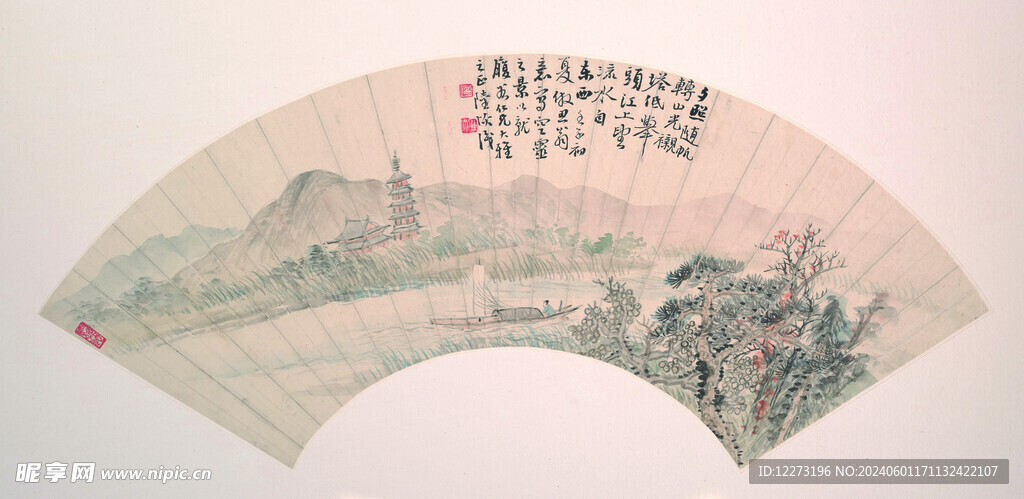 夕照隨帆
轉山光襯
塔低舉
頭江上望
流水自
东西壬子初
夏倣思翁
意寫空靈
之景以就
仁兄大雅
之正陸恢識
昵享网 www.nipic.cn
ID:12273196 NO:20240601171132422107